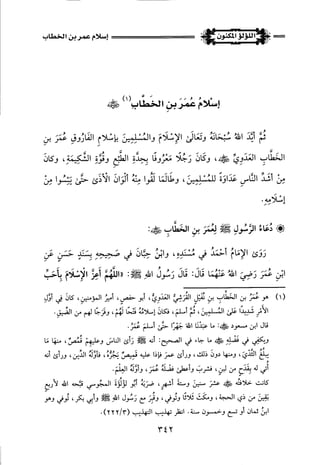 اللؤلؤ المكنون
إسلام عمر بن الخطاب
إِسْلَامُ عُمَرَ بنِ الخَطَّابِ (١) ﷺ
ثُمَّ أَيَّدَ اللهُ سُبْحَانَهُ وَتَعَالَى الإِسْلَامَ والمُسْلِمِينَ بِإِسْلَامِ الفَارُوقِ عُمَرَ بنِ
الخَطَّابِ العَدَوِيِّ ، وكَانَ رَجُلًا مَعْرُوفًا بِحِدَّةِ الطَّبْعِ وقُوَّةِ الشَّكِيمَةِ، وكَانَ
مِنْ أَشَدِّ النَّاسِ عَدَاوَةً لِلْمُسْلِمِينَ، وطَالَمَا لَقُوا مِنْهُ أَلْوَانَ الأَذَى حَتَّى يَئِسُوا مِنْ
إِسْلَامِهِ.
دُعَاءُ الرَّسُولِ ﷺ لِعُمَرَ بنِ الخَطَّابِ :
رَوَى الإِمَامُ أَحْمَدُ فِي مُسْنَدِهِ، وابْنُ حِبَّانَ فِي صَحِيحِهِ بِسَنَدٍ حَسَنٍ عَنِ
ابْنِ عُمَرَ رَضِيَ اللهُ عَنْهُمَا قَالَ: قَالَ رَسُولُ اللهِ ﷺ: «اللَّهُمَّ أَعِزَّ الإِسْلَامَ بِأَحَبِّ
(١) هو عُمَرُ بن الخطاب بن نُفَيْلٍ القُرَشِيُّ العَدَوِيُّ، أبو حفص، أميرُ المؤمنين، كان في أوَّلِ
الأمرِ شَدِيدًا على المسلمينَ، ثُمَّ أسلم، فكان إسلامُهُ فَتْحًا لَهُمْ، وفَرَجًا لهم من الضِّيقِ.
قال ابن مسعود : ما عبَدْنَا الله جَهْرًا حتَّى أسلم عُمَرُ.
ويكفي في فَضْلِهِ ما جاء في الصحيح: أنه ﷺ رأى الناسَ وعليهِمْ قُمُصٌ، منها مَا
يبلُغُ الثَّدْيَ، ومنها دونَ ذلك، ورأى عمرَ فإذا عليه قميصٌ يَجُرُّهُ، فأوَّلَهُ الدِّين، ورأى أنه
أُتي له بِقَدَحٍ من لبنٍ، فشرِبَ وأعطى فضلَهُ عُمَرَ، وأوَّلَهُ العِلْمَ.
كانت خلافتُهُ عشر سنين وستة أشهر، ضربَهُ أبو لُؤْلُؤَةَ المجوسي قبَّحه الله لأربعٍ
بَقِينَ من ذي الحجة، ومَكَثَ ثلاثًا وتُوفي، ودُفِنَ مع رسول الله ﷺ وأبي بكر، تُوفي وهو
ابنُ ثمان أو تسع وخمسون سنة. انظر تهذيب التهذيب (٢٢٢/٣).
٣٤٢